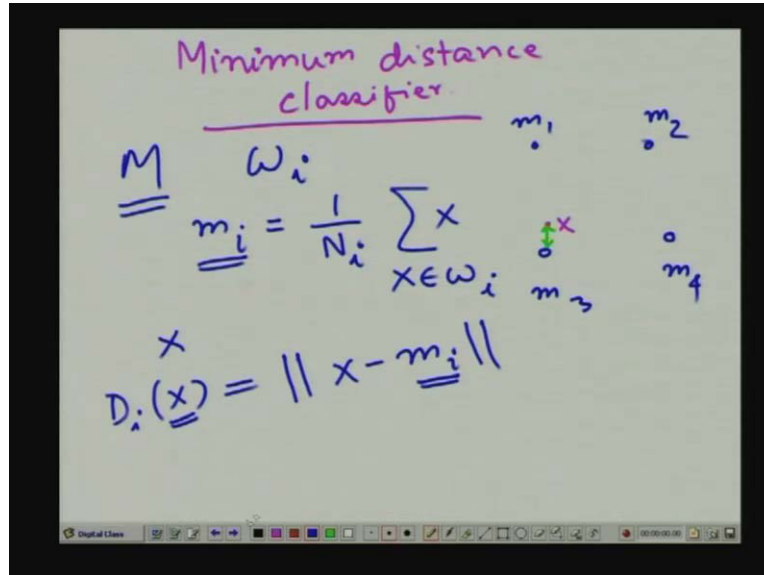 Minimum distance
classifier.
m₁ m₂
M ωᵢ
mᵢ = 1/Nᵢ ∑ X
X∈ωᵢ
X
m₃ m₄
X
Dᵢ(X) = || X - mᵢ ||
Digital Class 00:00:00.00